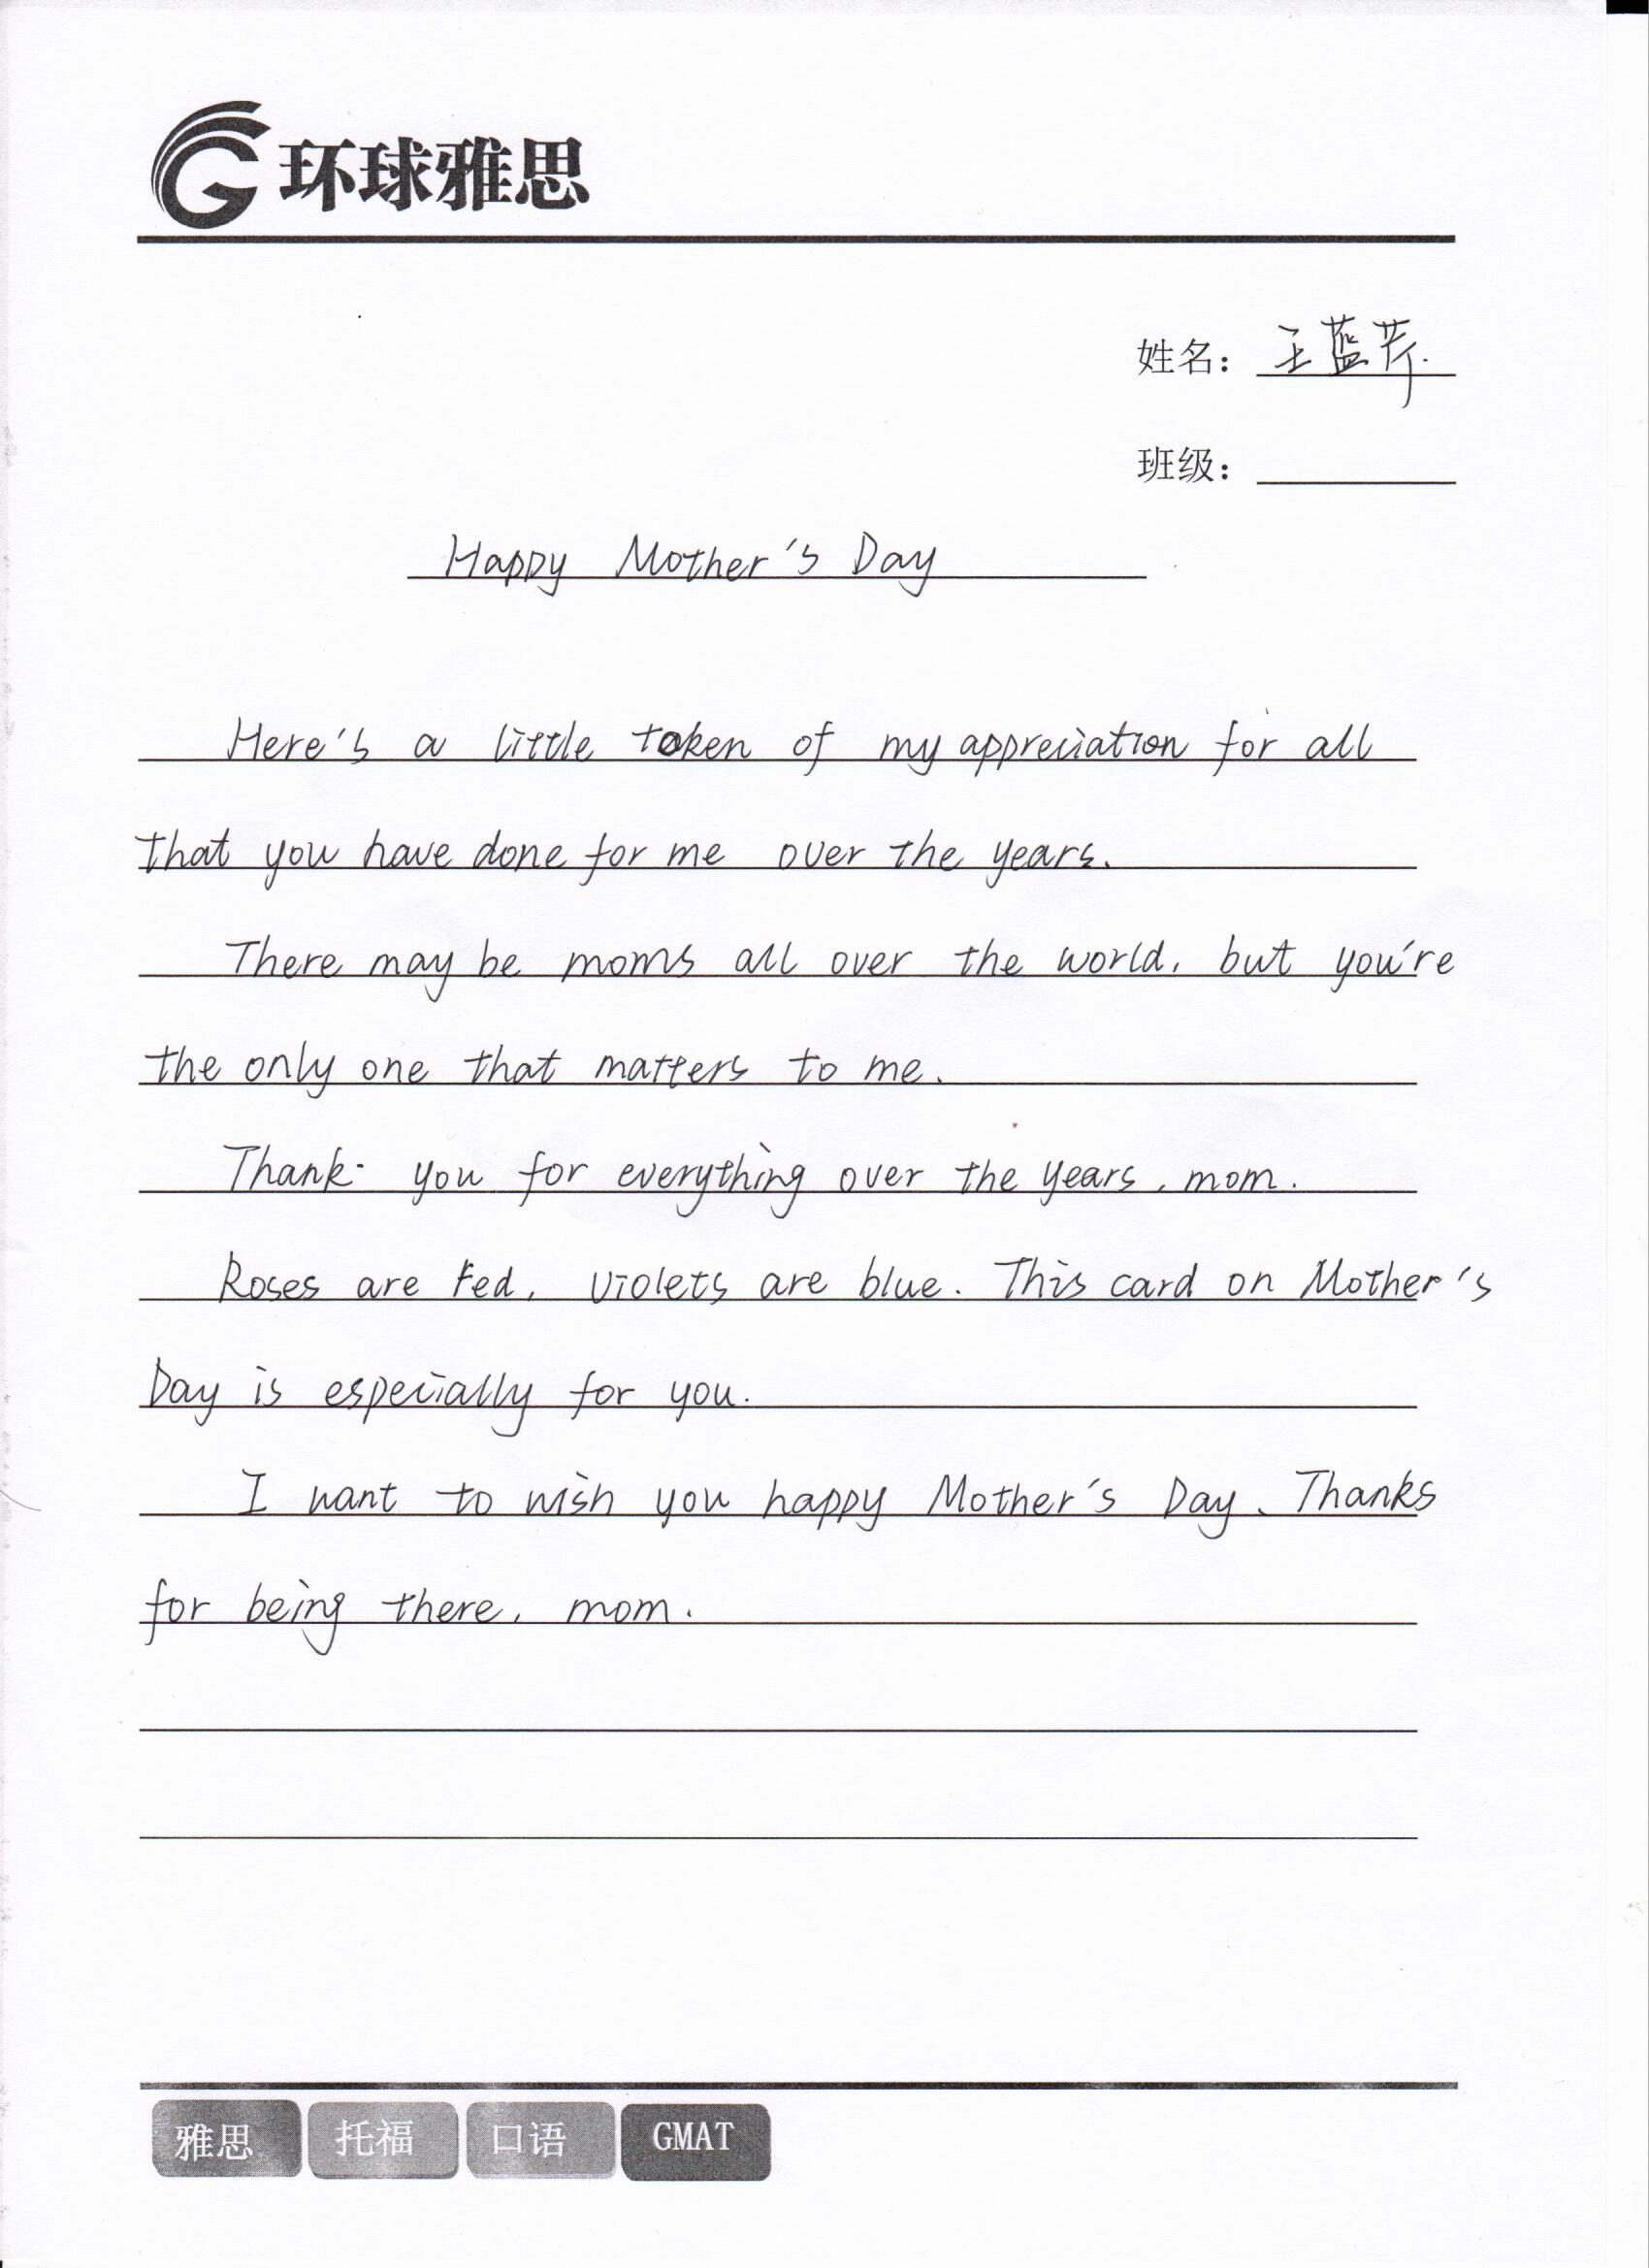 环球雅思
姓名: 王蓝芹.
班级:
Happy Mother's Day
Here's a little token of my appreciation for all
that you have done for me over the years.
There may be moms all over the world, but you're
the only one that matters to me.
Thank you for everything over the years, mom.
Roses are red, violets are blue. This card on Mother's
Day is especially for you.
I want to wish you happy Mother's Day. Thanks
for being there, mom.
雅思 托福 口语 GMAT